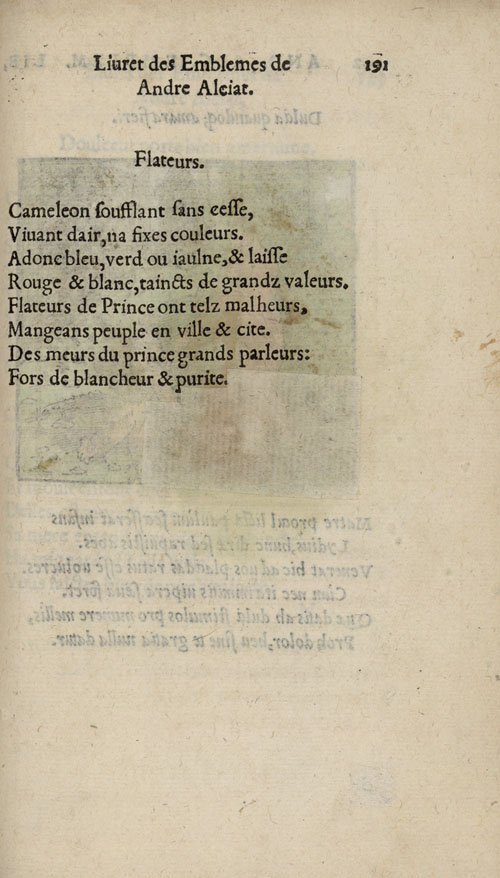 Liuret des Emblemes de 191
Andre Alciat.
Flateurs.
Cameleon ſoufflant ſans ceſſe,
Viuant dair, na fixes couleurs.
Adonc bleu, verd ou iaulne, & laiſſe
Rouge & blanc, taincts de grandz valeurs.
Flateurs de Prince ont telz malheurs,
Mangeans peuple en ville & cite.
Des meurs du prince grands parleurs:
Fors de blancheur & purite.